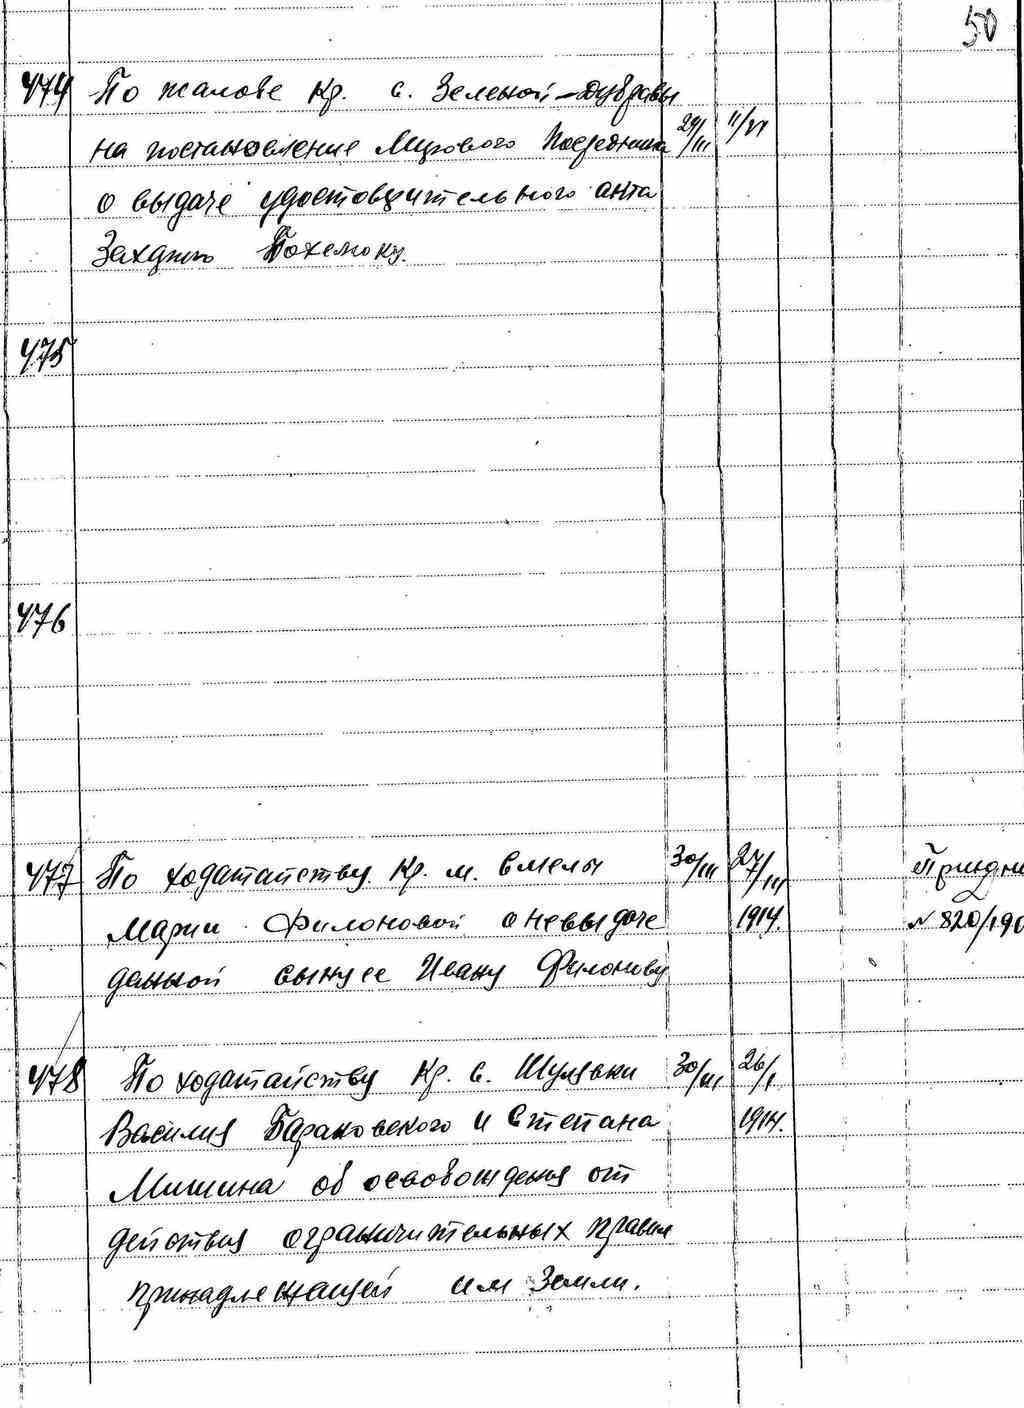 50
474 По жалобе кр. с. Зеленой-Дубравы
на постановление Мирового Посредника 29/III 11/VI
о выдаче удостоверительного акта
Захарию
475
476
477 По ходатайству кр. м. Смелы 30/III 27/III
Марии Филоновой о невыдаче 1914. № 820/190
данной сыну ее Ивану Филонову
478 По ходатайству кр. с. Шуляки 30/III 26/I
Василия Бараковского и Степана 1914.
Мишина об освобождения от
действия ограничительных правил
принадлежащей им земли.